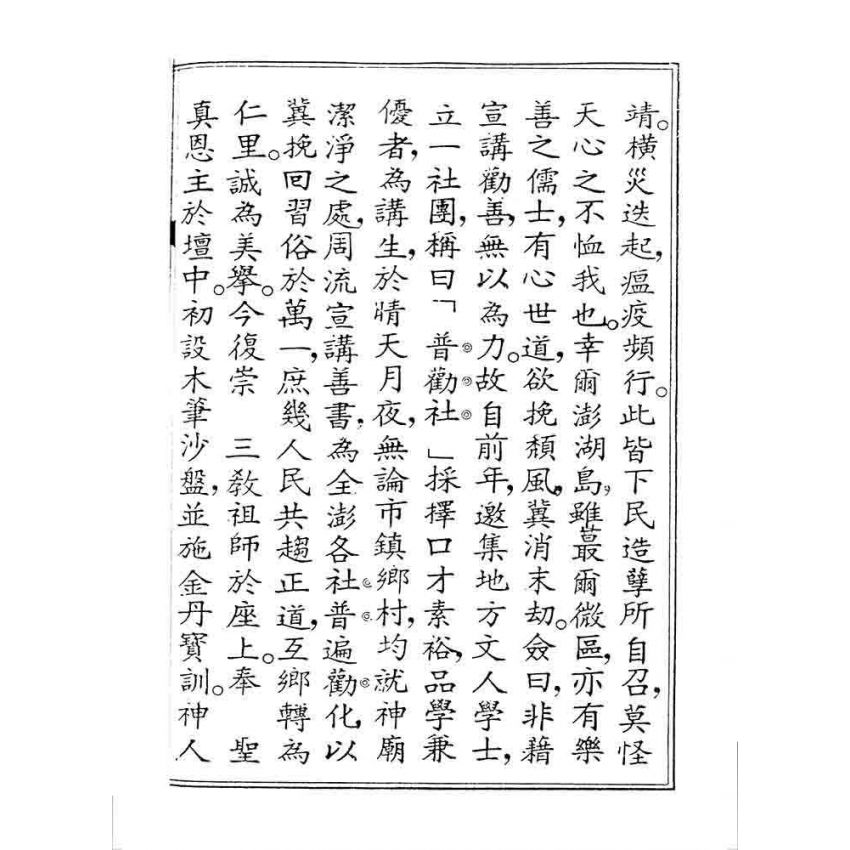 靖。橫災迭起，瘟疫頻行。此皆下民造孽所自召，莫怪
天心之不恤我也。幸爾澎湖島，雖蕞爾微區，亦有樂
善之儒士，有心世道，欲挽頹風，冀消末劫。僉曰，非藉
宣講勸善，無以為力。故自前年，邀集地方文人學士，
立一社團，稱曰「普勸社」採擇口才素裕，品學兼
優者，為講生，於晴天月夜，無論市鎮鄉村，均就神廟
潔淨之處，周流宣講善書，為全澎各社普遍勸化，以
冀挽回習俗於萬一，庶幾人民共趨正道，互鄉轉為
仁里。誠為美舉。今復崇　三教祖師於座上。奉　聖
真恩主於壇中。初設木筆沙盤，並施金丹寶訓。神人